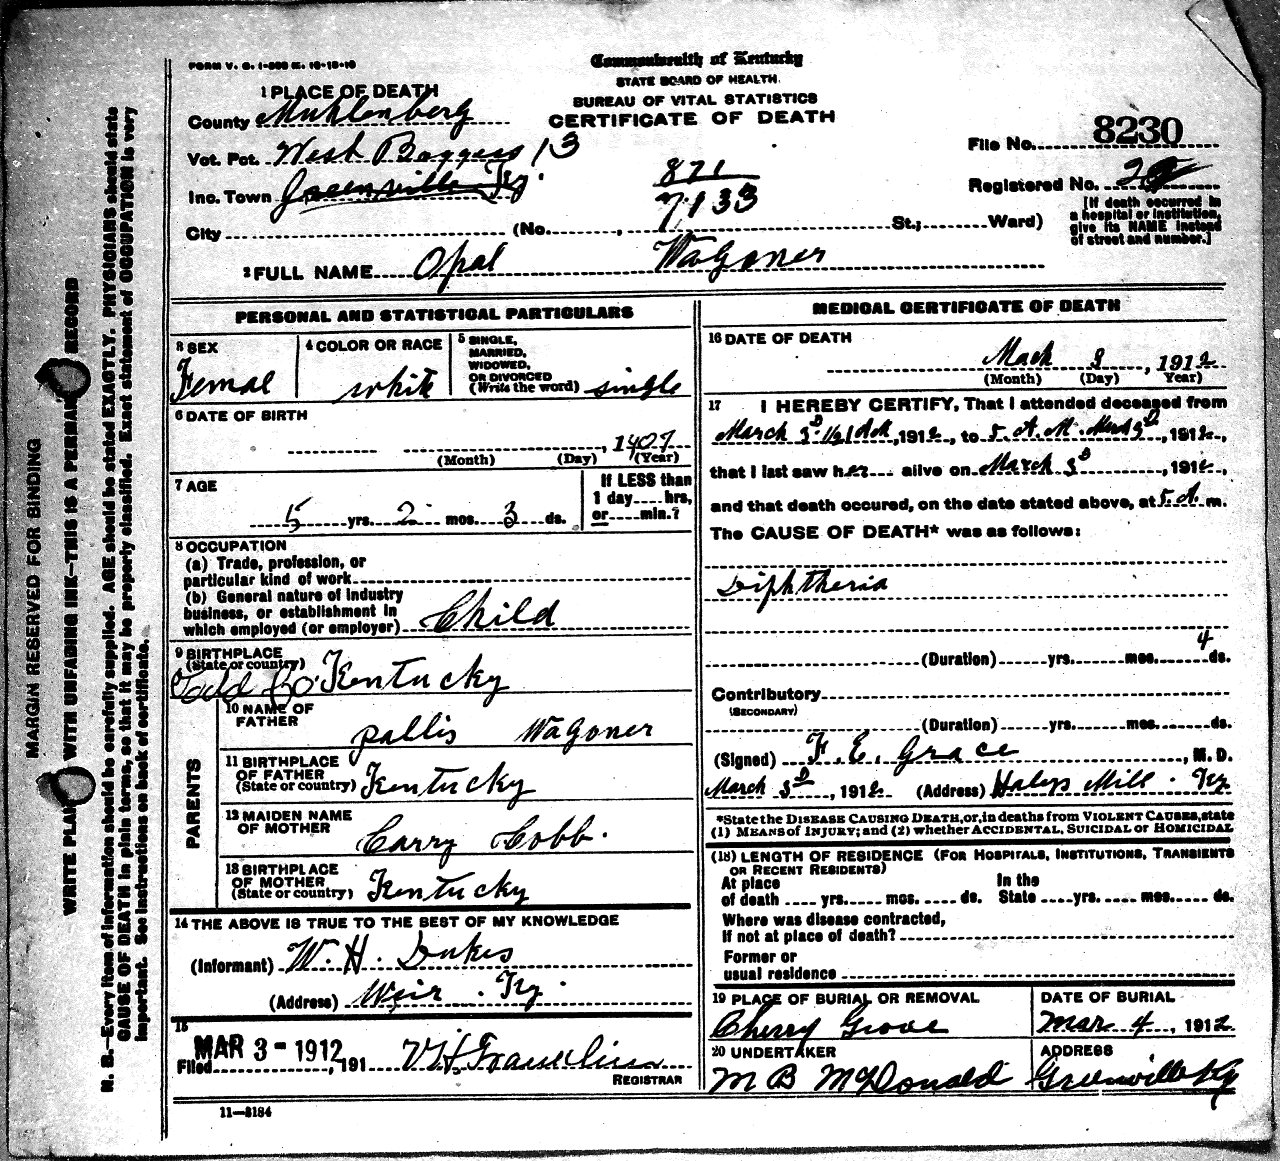 FORM V. S. 1-
Commonwealth of Kentucky
STATE BOARD OF HEALTH.
BUREAU OF VITAL STATISTICS
CERTIFICATE OF DEATH
1 PLACE OF DEATH
County Muhlenberg
Vot. Pct. West Boggess 13
Inc. Town Greenville Ky.
City (No. , St.; Ward)
871
7133
File No. 8230
Registered No. 2
[If death occurred in
a hospital or institution,
give its NAME instead
of street and number.]
2 FULL NAME Opal Wagoner
PERSONAL AND STATISTICAL PARTICULARS
3 SEX
Femal
4 COLOR OR RACE
white
5 SINGLE,
MARRIED,
WIDOWED,
OR DIVORCED
(Write the word) single
6 DATE OF BIRTH
, 1907
(Month) (Day) (Year)
7 AGE
5 yrs. 2 mos. 3 ds.
If LESS than
1 day hrs,
or min.?
8 OCCUPATION
(a) Trade, profession, or
particular kind of work
(b) General nature of industry
business, or establishment in
which employed (or employer) Child
9 BIRTHPLACE
(State or country) Kentucky
Todd Co.
PARENTS
10 NAME OF
FATHER pallis Wagoner
11 BIRTHPLACE
OF FATHER
(State or country) Kentucky
12 MAIDEN NAME
OF MOTHER Carry Cobb.
13 BIRTHPLACE
OF MOTHER
(State or country) Kentucky
14 THE ABOVE IS TRUE TO THE BEST OF MY KNOWLEDGE
(Informant) W. H. Dukes
(Address) Weir . Ky.
15
Filed MAR 3 - 1912, 191 V H Franklin
REGISTRAR
11-3184
MEDICAL CERTIFICATE OF DEATH
16 DATE OF DEATH
Mach 3, 1912
(Month) (Day) Year)
17 I HEREBY CERTIFY, That I attended deceased from
March 3D , 1912, to 5. A. M. 3D, 1912,
that I last saw her alive on March 3D, 1912,
and that death occured, on the date stated above, at 5. A. m.
The CAUSE OF DEATH* was as follows:
Diphtheria
(Duration) yrs. mos. 4 ds.
Contributory
(SECONDARY)
(Duration) yrs. mos. ds.
(Signed) F. E. Grace, M. D.
March 3D, 1912 (Address) Haleys Mill . Ky
*State the DISEASE CAUSING DEATH, or, in deaths from VIOLENT CAUSES, state
(1) MEANS OF INJURY; and (2) whether ACCIDENTAL, SUICIDAL or HOMICIDAL
(18) LENGTH OF RESIDENCE (FOR HOSPITALS, INSTITUTIONS, TRANSIENTS
OR RECENT RESIDENTS)
At place In the
of death yrs. mos. ds. State yrs. mos. ds.
Where was disease contracted,
If not at place of death?
Former or
usual residence
19 PLACE OF BURIAL OR REMOVAL
Cherry Grove
DATE OF BURIAL
Mar 4, 1912
20 UNDERTAKER
M B McDonald
ADDRESS
Greenville Ky
MARGIN RESERVED FOR BINDING
WRITE PLAINLY WITH UNFADING INK—THIS IS A PERMANENT RECORD
N. B.—Every item of information should be carefully supplied. AGE should be stated EXACTLY. PHYSICIANS should state
CAUSE OF DEATH in plain terms, so that it may be properly classified. Exact statement of OCCUPATION is very
important. See instructions on back of certificate.